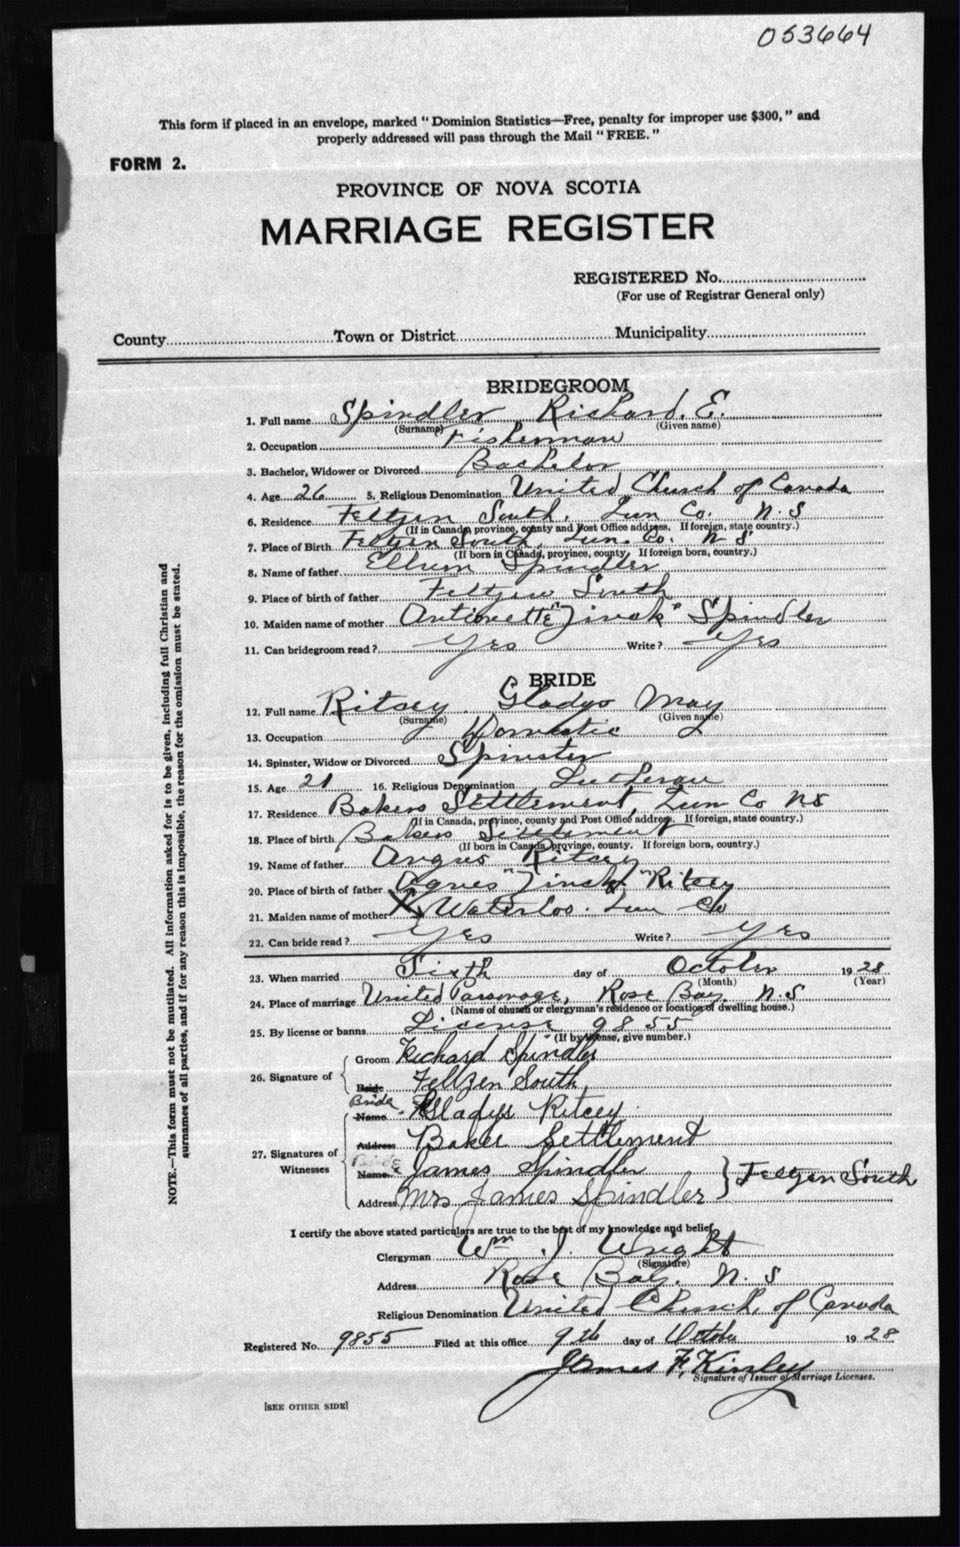 053664
This form if placed in an envelope, marked "Dominion Statistics—Free, penalty for improper use $300," and
properly addressed will pass through the Mail "FREE."
FORM 2.
PROVINCE OF NOVA SCOTIA
MARRIAGE REGISTER
REGISTERED No.
(For use of Registrar General only)
County Town or District Municipality
BRIDEGROOM
1. Full name Spindler Richard. E.
(Surname) (Given name)
2. Occupation Fisherman
3. Bachelor, Widower or Divorced Bachelor
4. Age 26 5. Religious Denomination United Church of Canada
6. Residence Feltzen South. Lun Co. N.S
(If in Canada, province, county and Post Office address. If foreign, state country.)
7. Place of Birth Feltzen South, Lun. Co. N S
(If born in Canada, province, county. If foreign born, country.)
8. Name of father Spindler
9. Place of birth of father Feltzen South
10. Maiden name of mother Antionette "Zinck" Spindler
11. Can bridegroom read? Yes Write? Yes
BRIDE
12. Full name Ritcey. Gladys May
(Surname) (Given name)
13. Occupation Domestic
14. Spinster, Widow or Divorced Spinster
15. Age 21 16. Religious Denomination Lutheran
17. Residence Bakers Settlement, Lun Co NS
(If in Canada, province, county and Post Office address. If foreign, state country.)
18. Place of birth Bakers Settlement
(If born in Canada, province, county. If foreign born, country.)
19. Name of father Angus Ritcey
20. Place of birth of father Agnes "Zinck" Ritcey
21. Maiden name of mother Waterloo. Lun Co
22. Can bride read? Yes Write? Yes
23. When married Sixth day of October 1928
(Month) (Year)
24. Place of marriage United Parsonage, Rose Bay. N.S
(Name of church or clergyman's residence or location of dwelling house.)
25. By license or banns License 9855
(If by license, give number.)
Groom Richard Spindler
26. Signature of
Bride Feltzen South,
Bride
Name Gladys Ritcey
Address Baker Settlement
27. Signatures of
Witnesses
Name James Spindler
Feltzen South
Address Mrs James Spindler
I certify the above stated particulars are true to the best of my knowledge and belief,
Clergyman Wm J. Wright
(Signature)
Address Rose Bay. N. S
Religious Denomination United Church, of Canada
Registered No. 9855 Filed at this office 9th day of October 1928
James F. Kinley
Signature of Issuer of Marriage Licenses.
[SEE OTHER SIDE]
NOTE.—This form must not be mutilated. All information asked for is to be given, including full Christian and
surnames of all parties, and if for any reason this is impossible, the reason for the omission must be stated.